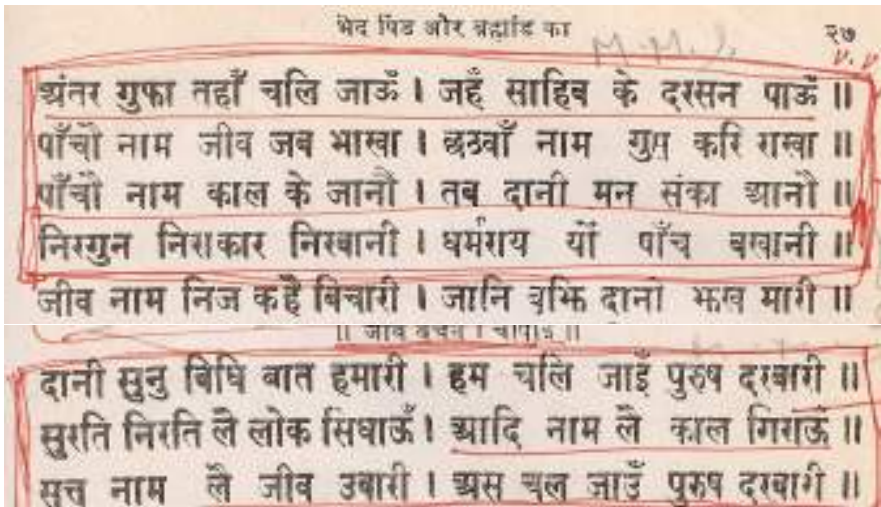 भेद पिंड और ब्रह्मांड का
२७
अंतर गुफा तहाँ चलि जाऊँ । जहँ साहिब के दरसन पाऊँ ॥
पाँचौ नाम जीव जब भाखा । छठवाँ नाम गुप्त करि राखा ॥
पाँचौ नाम काल के जानौ । तब दानी मन संका आनौ ॥
निरगुन निराकार निरबानी । धर्मराय यों पाँच बखानी ॥
जीव नाम निज कहै बिचारी । जानि बूझि दानो झख मारी ॥
॥ जीव बचन । चौपाई ॥
दानी सुनु बिधि बात हमारी । हम चलि जाइँ पुरुष दरबारी ॥
सुरति निरति लै लोक सिधाऊँ । आदि नाम लै काल गिराऊँ ॥
सत्त नाम लै जीव उबारी । अस चल जाउँ पुरुष दरबारी ॥